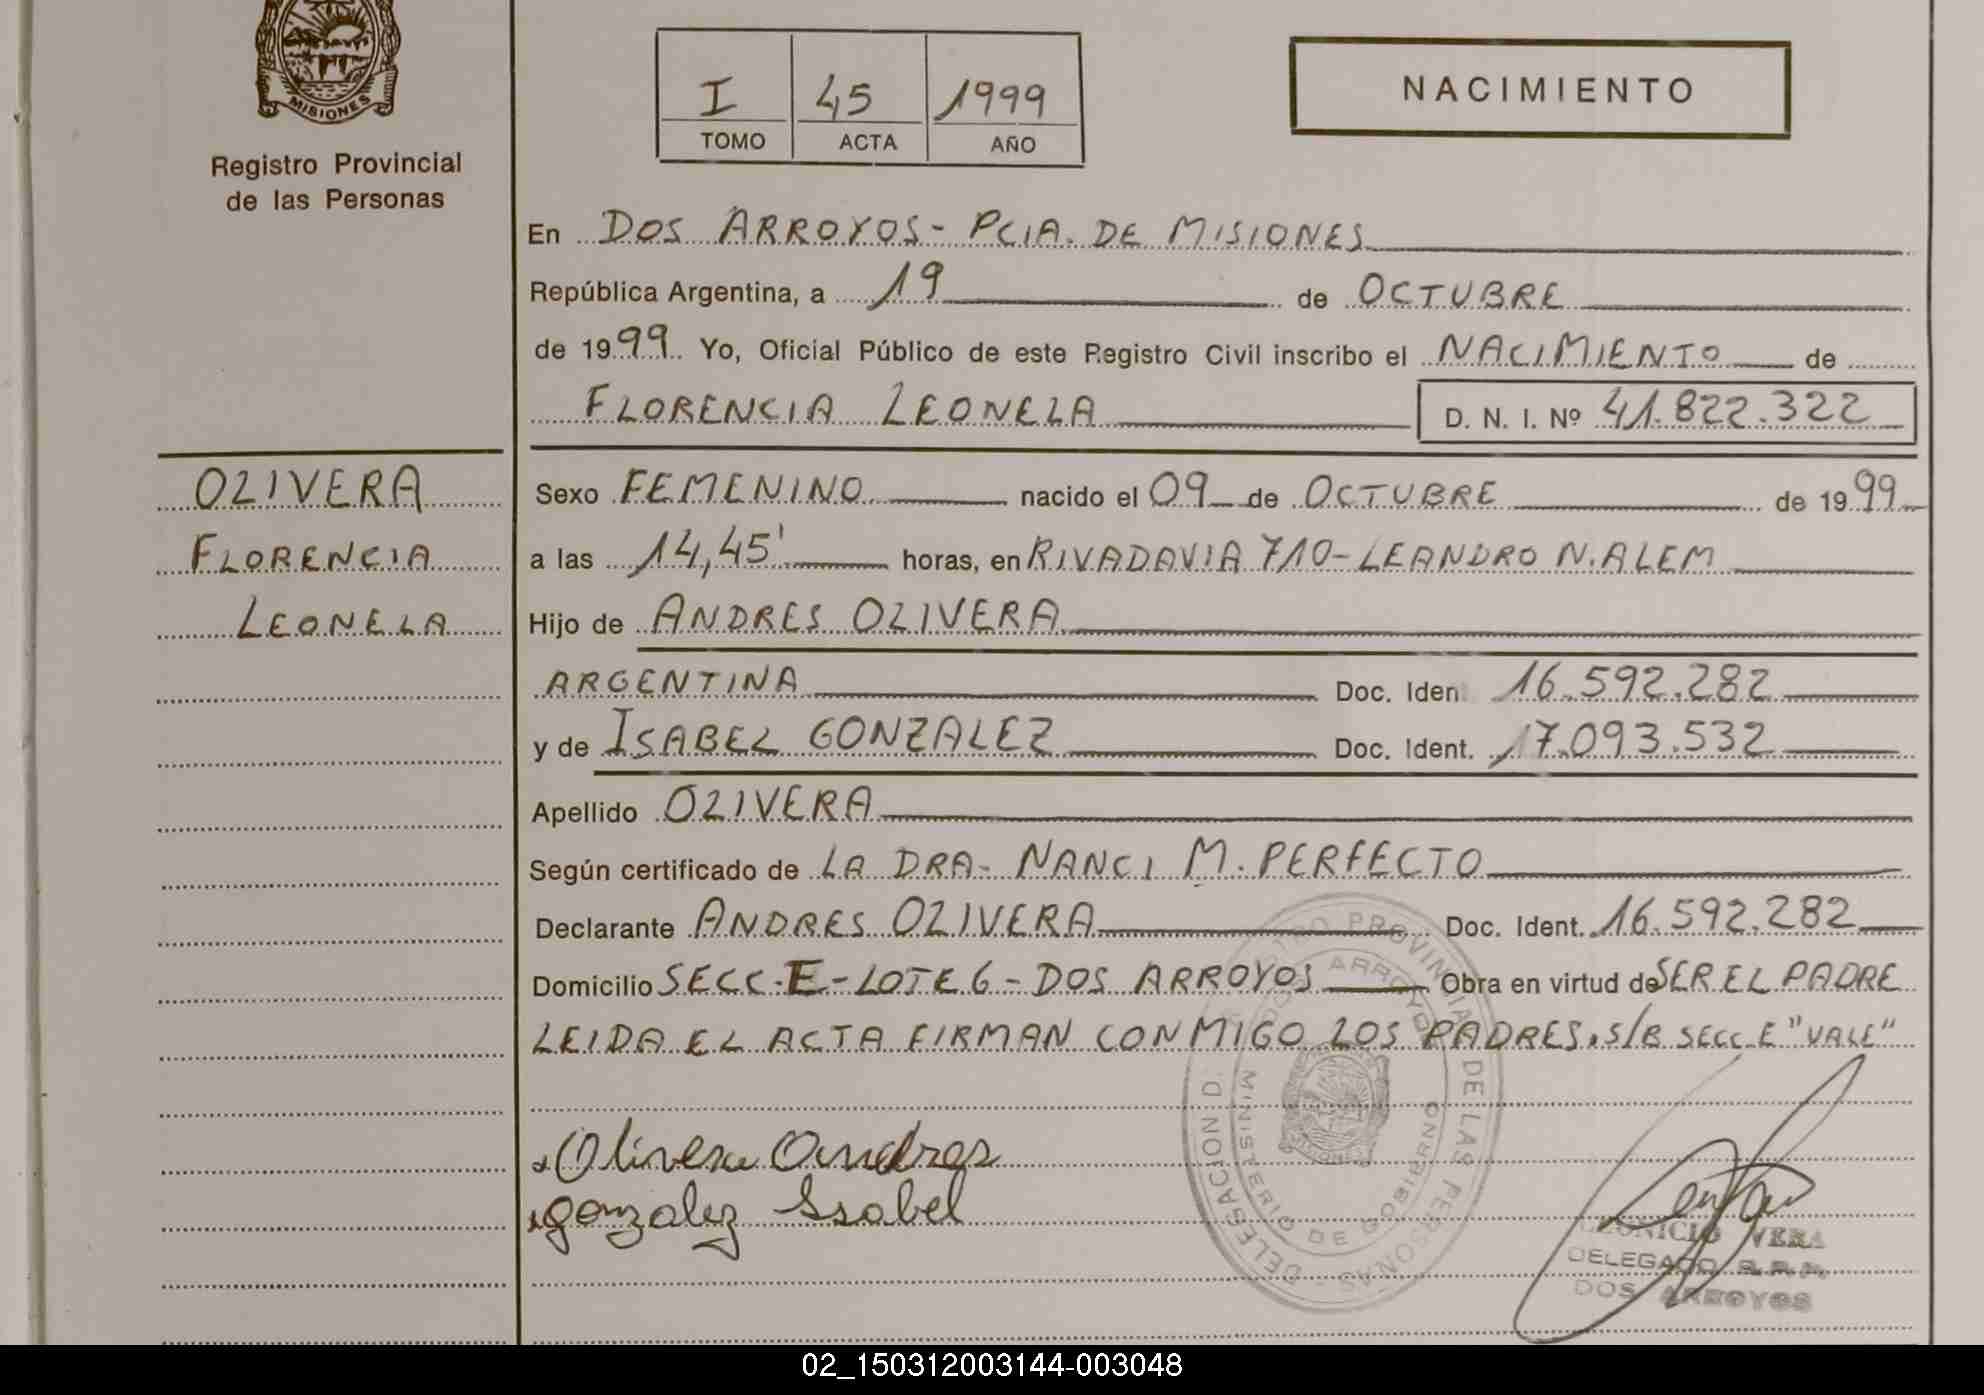 MISIONES
Registro Provincial
de las Personas
I 45 1999
TOMO ACTA AÑO
NACIMIENTO
En DOS ARROYOS - PCIA. DE MISIONES
República Argentina, a 19 de OCTUBRE
de 1999. Yo, Oficial Público de este Registro Civil inscribo el NACIMIENTO de
FLORENCIA LEONELA D. N. I. Nº 41.822.322
OLIVERA
FLORENCIA
LEONELA
Sexo FEMENINO nacido el 09 de OCTUBRE de 1999
a las 14,45' horas, en RIVADAVIA 710-LEANDRO N. ALEM
Hijo de ANDRES OLIVERA
ARGENTINA Doc. Iden 16.592.282
y de ISABEL GONZALEZ Doc. Ident. 17.093.532
Apellido OLIVERA
Según certificado de LA DRA- NANCI M. PERFECTO
Declarante ANDRES OLIVERA Doc. Ident. 16.592.282
Domicilio SECC.E-LOTE 6-DOS ARROYOS Obra en virtud de SER EL PADRE
LEIDA EL ACTA FIRMAN CONMIGO LOS PADRES. S/B SECC E "VALE"
Olivera Andres
gonzalez Issabel
PROVINCIAL DE LAS PERSONAS - DELEGACION D
ARROYO
MINISTERIO DE GOBIERNO
LEONICIO VERA
DELEGADO R.P.P.
DOS ARROYOS
02_150312003144-003048